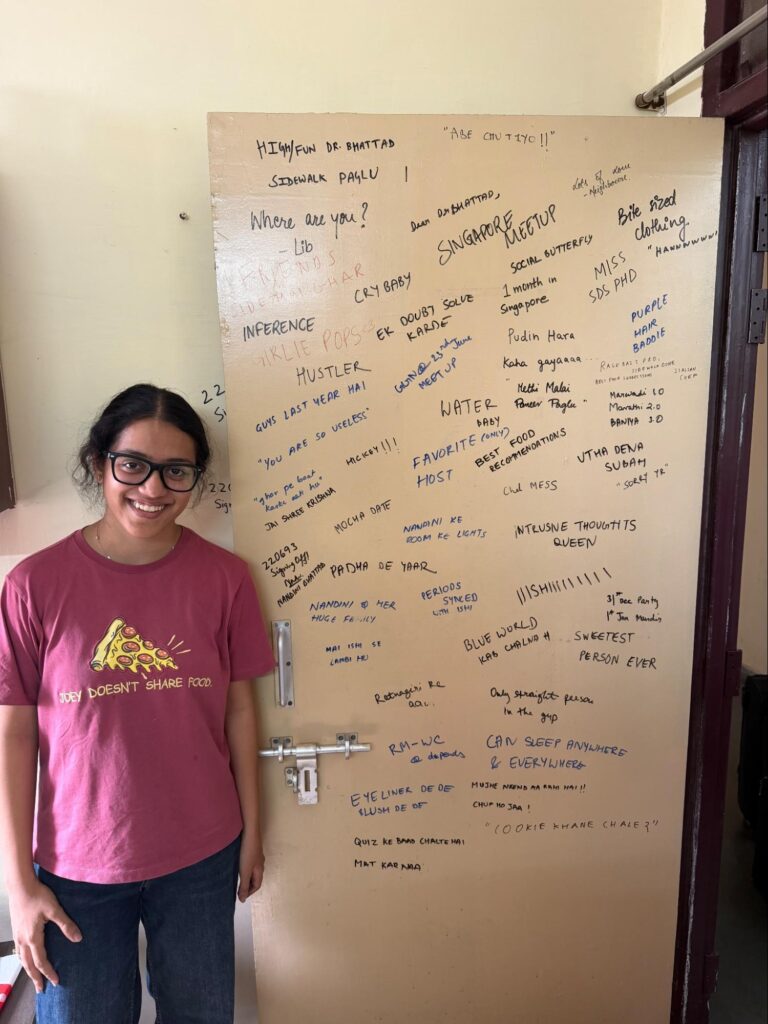 HIGH/FUN DR. BHATTAD
SIDEWALK PAGLU !
Where are you?
- Lib
FRIENDS
GHAR
INFERENCE
GIRLIE POPS
CRY BABY
HUSTLER
GUYS LAST YEAR HAI
"YOU ARE SO USELESS"
HICKEY!!!
"ghar pe baat
karke aati hu"
JAI SHREE KRISHNA
MOCHA DATE
220693
Signing Off
NANDINI BHATTAD
PADHA DE YAAR
NANDINI & HER
HUGE
MAI ISHI SE
LAMBI HU
"ABE CHUTIYO!!"
Dear Dr BHATTAD,
SINGAPORE
MEETUP
SOCIAL BUTTERFLY
1 month in
Singapore
EK DOUBT SOLVE
KARDE
23rd June
MEETUP
Pudin Hara
Kaha gayaaaa...
"Methi Malai
Paneer Paglu"
WATER
BABY
FAVORITE (ONLY)
HOST
BEST FOOD
RECOMMENDATIONS
Chd MESS
NANDINI KE
ROOM KE LIGHTS
PERIODS
SYNCED
WITH ISHI
BLUE WORLD
KAB CHALNA H
Ratnagiri ke
Only straight person
in the grp
RM-WC
@ depends
CAN SLEEP ANYWHERE
& EVERYWHERE
EYELINER DE DE
BLUSH DE DE
MUJHE NEEND AA RAHI HAI!!
CHUP HO JAA!
"COOKIE KHANE CHALE?"
QUIZ KE BAAD CHALTE HAI
MAT KAR NAA
Lots of love
- Neighbour
Bite sized
clothing
"HAWWWWW!
MISS
SDS PHD
PURPLE
HAIR
BADDIE
Marwadi 1.0
Marathi 2.0
BANIYA 3.0
UTHA DENA
SUBAH
"SORRY YR"
INTRUSIVE THOUGHTS
QUEEN
31st Dec Party
1st Jan Mandir
SWEETEST
PERSON EVER
22
220
JOEY DOESN'T SHARE FOOD.